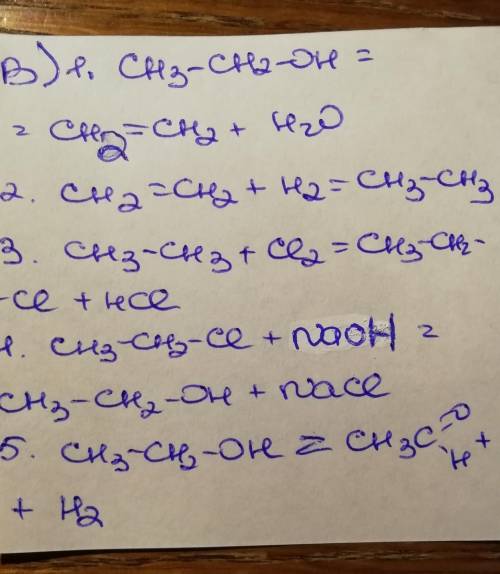 В) 1. CH3-CH2-OH =
= CH2=CH2 + H2O
2. CH2=CH2 + H2 = CH3-CH3
3. CH3-CH3 + Cl2 = CH3-CH2-
-Cl + HCl
4. CH3-CH2-Cl + NaOH =
CH3-CH2-OH + NaCl
5. CH3-CH2-OH = CH3C=O-H +
+ H2